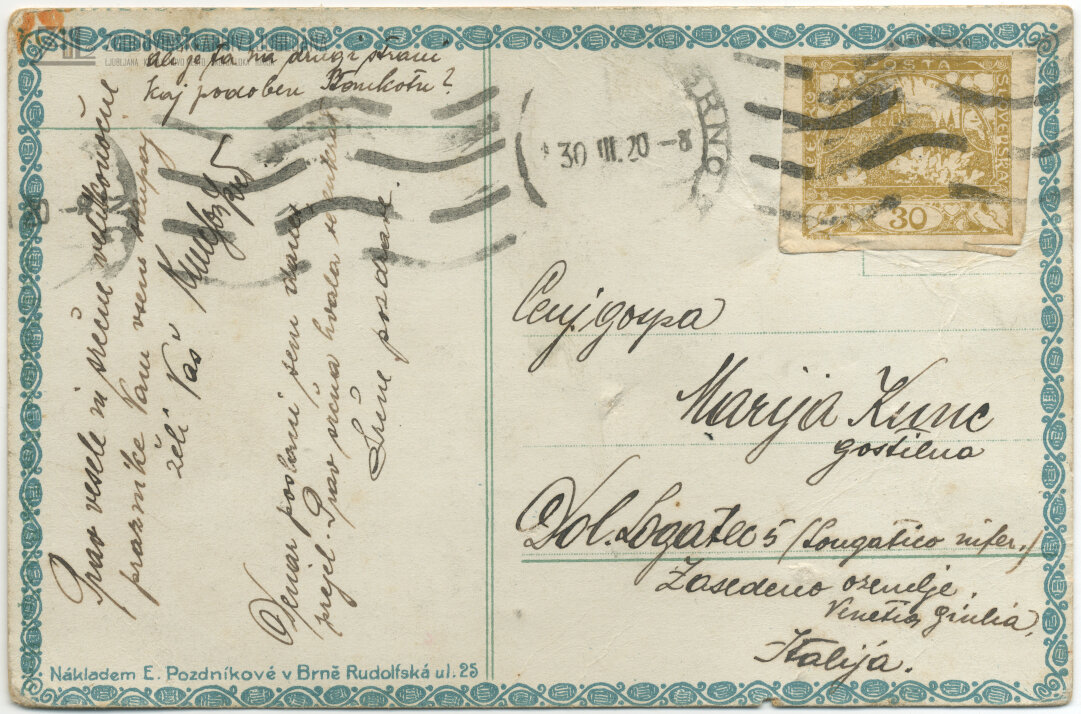 ali je ta na drugi strani
kaj podoben Tomikotu?
Prav vesele in srečne velikonočne
praznike Vam vsem skupaj
želi Vaš
Denar poslani sem
prejel. Prav srčna hvala
Srčne pozdrave
BRNO
30 III. 20 -8
POŠTA
ČESKO
SLOVENSKÁ
30
Cenj. gospa
Marija Kunc
gostilna
Dol. Logatec 5 (Longatico infer.)
Zasedeno ozemlje
Venetia Giulia,
Italija.
Nákladem E. Pozdníkové v Brně Rudolfská ul. 25